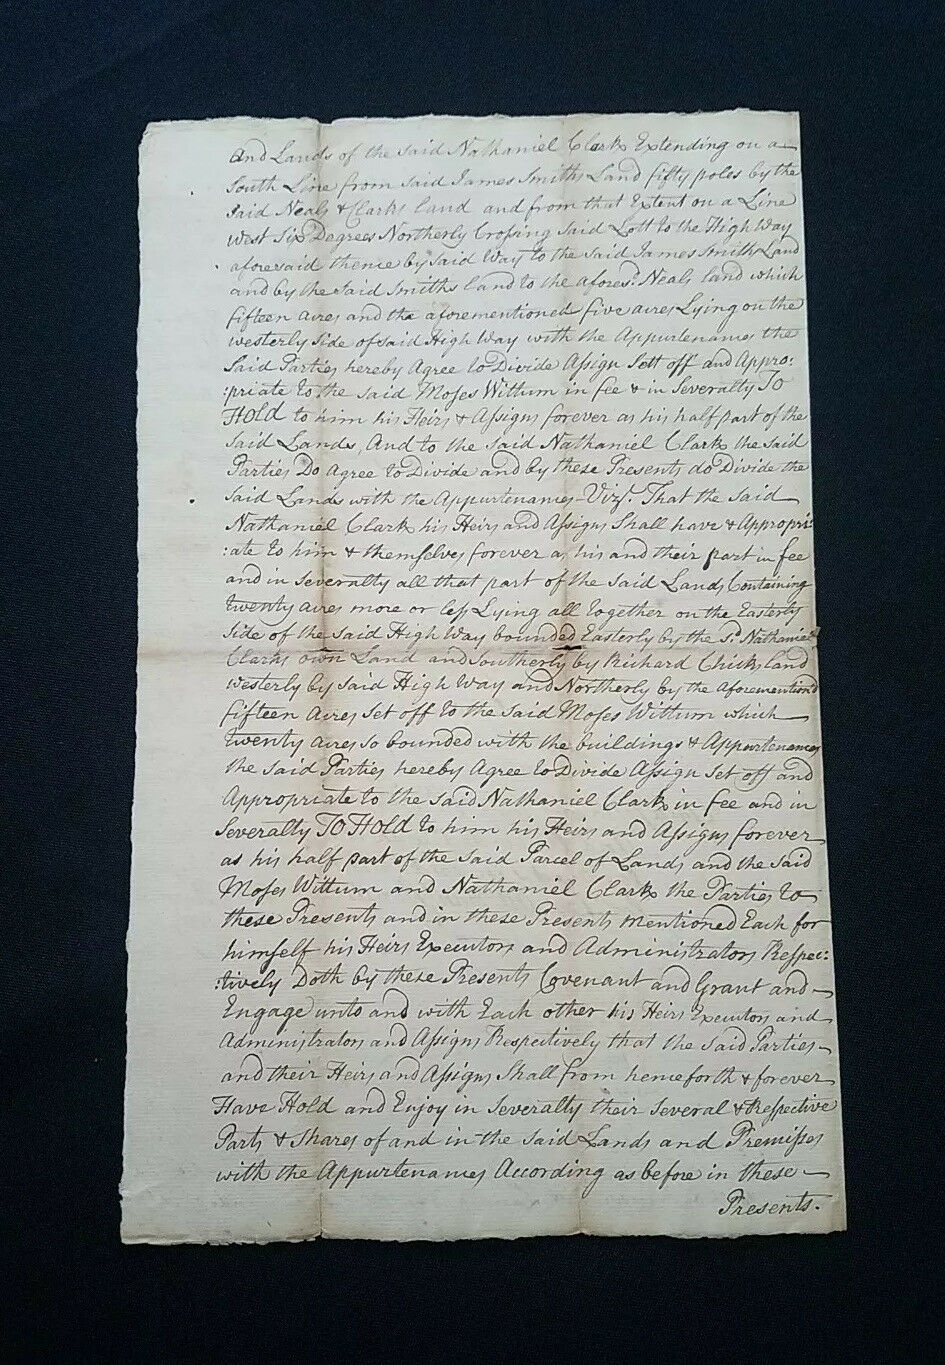 and Lands of the said Nathaniel Clark Extending on a
South Line from said James Smiths Land fifty poles by the
said Neals & Clarks land and from that Extent on a Line
West Six Degrees Northerly Crossing said Lott to the High Way
aforesaid thence by said Way to the said James Smiths Land
and by the said Smiths land to the afores.d Neals land which
fifteen acres and the aforementioned five acres Lying on the
westerly side of said High Way with the Appurtenances the
said Parties hereby Agree to Divide Assign Sett off and Appro:
:priate to the said Moses Wittum in fee & in Severalty TO
HOLD to him his Heirs & Assigns forever as his half part of the
said Lands, And to the said Nathaniel Clark the said
Parties Do Agree to Divide and by these Presents do Divide the
said Lands with the Appurtenances Viz.t That the said
Nathaniel Clark his Heirs and Assigns Shall have & Appropri:
:ate to him & themselves forever as his and their part in fee
and in Severalty all that part of the said Lands Containing
twenty acres more or less Lying all together on the Easterly
side of the said High Way bounded Easterly by the s.d Nathaniel
Clarks own Land and Southerly by Richard Chicks land
westerly by said High Way and Northerly by the aforemention'd
fifteen Acres set off to the said Moses Wittum which
twenty acres so bounded with the buildings & Appurtenances
the said Parties hereby Agree to Divide Assign set off and
Appropriate to the said Nathaniel Clark in fee and in
Severalty TO HOLD to him his Heirs and Assigns forever
as his half part of the said Parcel of Lands and the said
Moses Wittum and Nathaniel Clark the Parties to
these Presents and in these Presents mentioned Each for
himself his Heirs Executors and Administrators Respec:
:tively Doth by these Presents Covenant and Grant and
Engage unto and with Each other his Heirs Executors and
Administrators and Assigns Respectively that the said Parties
and their Heirs and Assigns Shall from henceforth & forever
Have Hold and Enjoy in Severalty their several & Respective
Parts & Shares of and in the said Lands and Premisses
with the Appurtenances According as before in these
Presents.